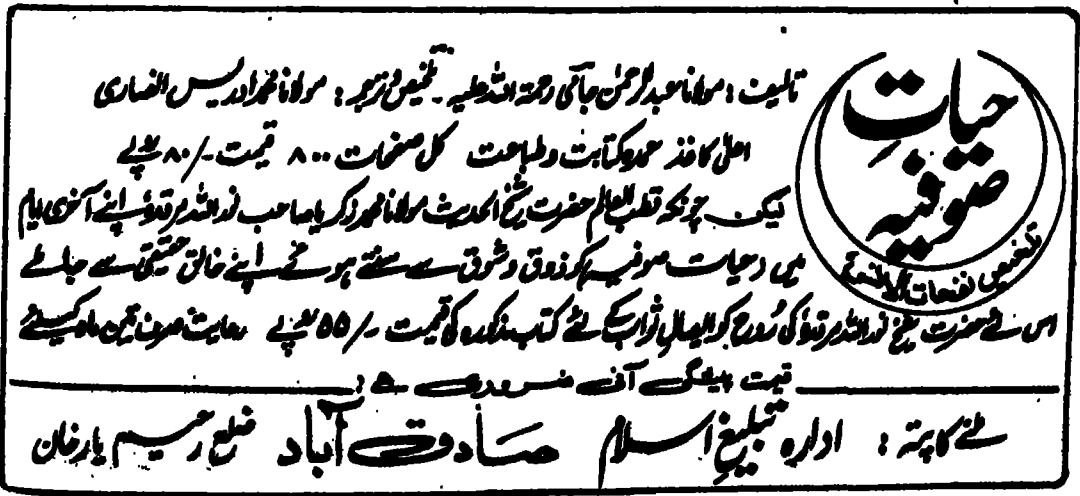 حیاتِ
صوفیہ
تلخیص نفحات الانس
تالیف: مولانا عبدالرحمٰن جامی رحمۃ اللہ علیہ ۔ تلخیص و ترجمہ: مولانا محمد ادریس انصاری
اعلیٰ کاغذ عمدہ کتابت و طباعت کل صفحات ۸۰۰ قیمت -/۸۰ روپے
لیکن چونکہ قطب العالم حضرت شیخ الحدیث مولانا محمد زکریا صاحب نور اللہ مرقدہٗ اپنے آخری ایام
میں "حیات صوفیہ" کو ذوق و شوق سے سنتے ہوئے اپنے خالق حقیقی سے جا ملے
اس لئے حضرت شیخ نور اللہ مرقدہٗ کی رُوح کو ایصال ثواب کے لئے کتاب مذکورہ کی قیمت -/۵۵ روپے رعایت صرف تین ماہ کیلئے
قیمت پیشگی آنی ضروری ہے :
ملنے کا پتہ : ادارہ تبلیغ اسلام صادق آباد ضلع رحیم یار خان